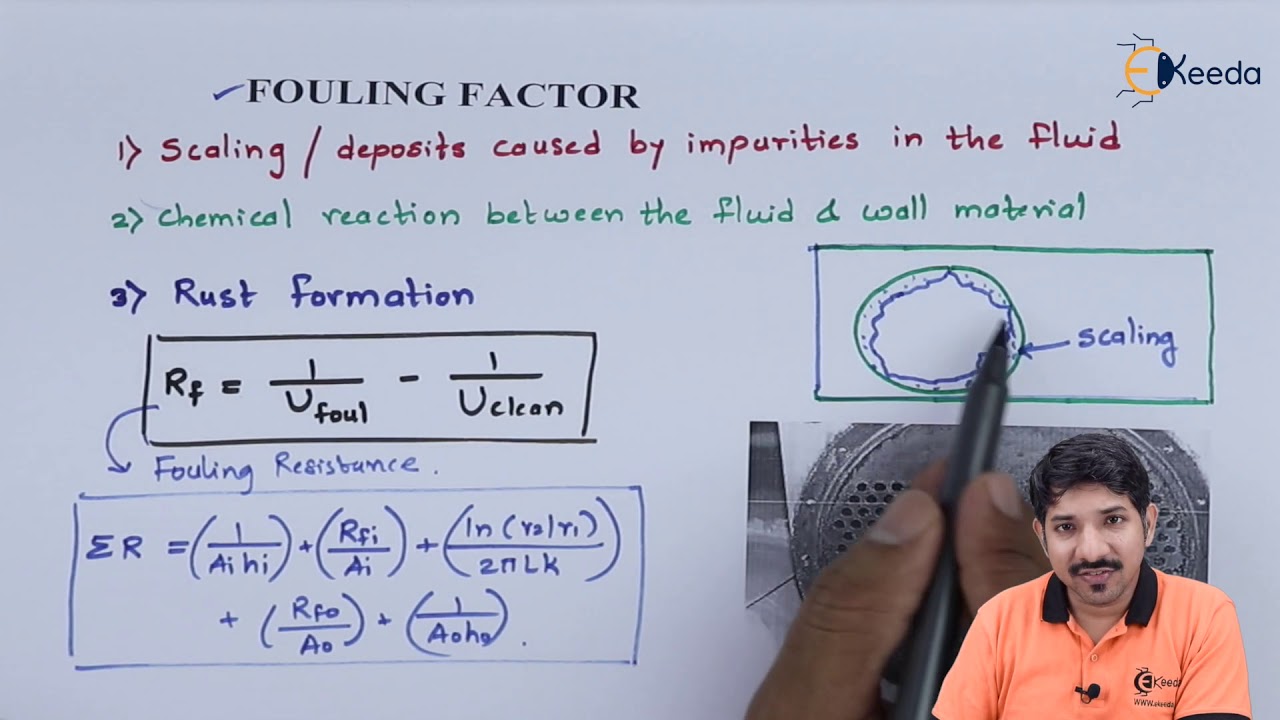 EKeeda
FOULING FACTOR
1) Scaling / deposits caused by impurities in the fluid
2) Chemical reaction between the fluid & wall material
3) Rust formation
Rf = 1/Ufoul - 1/Uclean
Fouling Resistance.
scaling
ΣR = (1/Aihi) + (Rfi/Ai) + (ln(r2/r1)/2πLk)
+ (Rfo/Ao) + (1/Aoho).
EKeeda
www.ekeeda